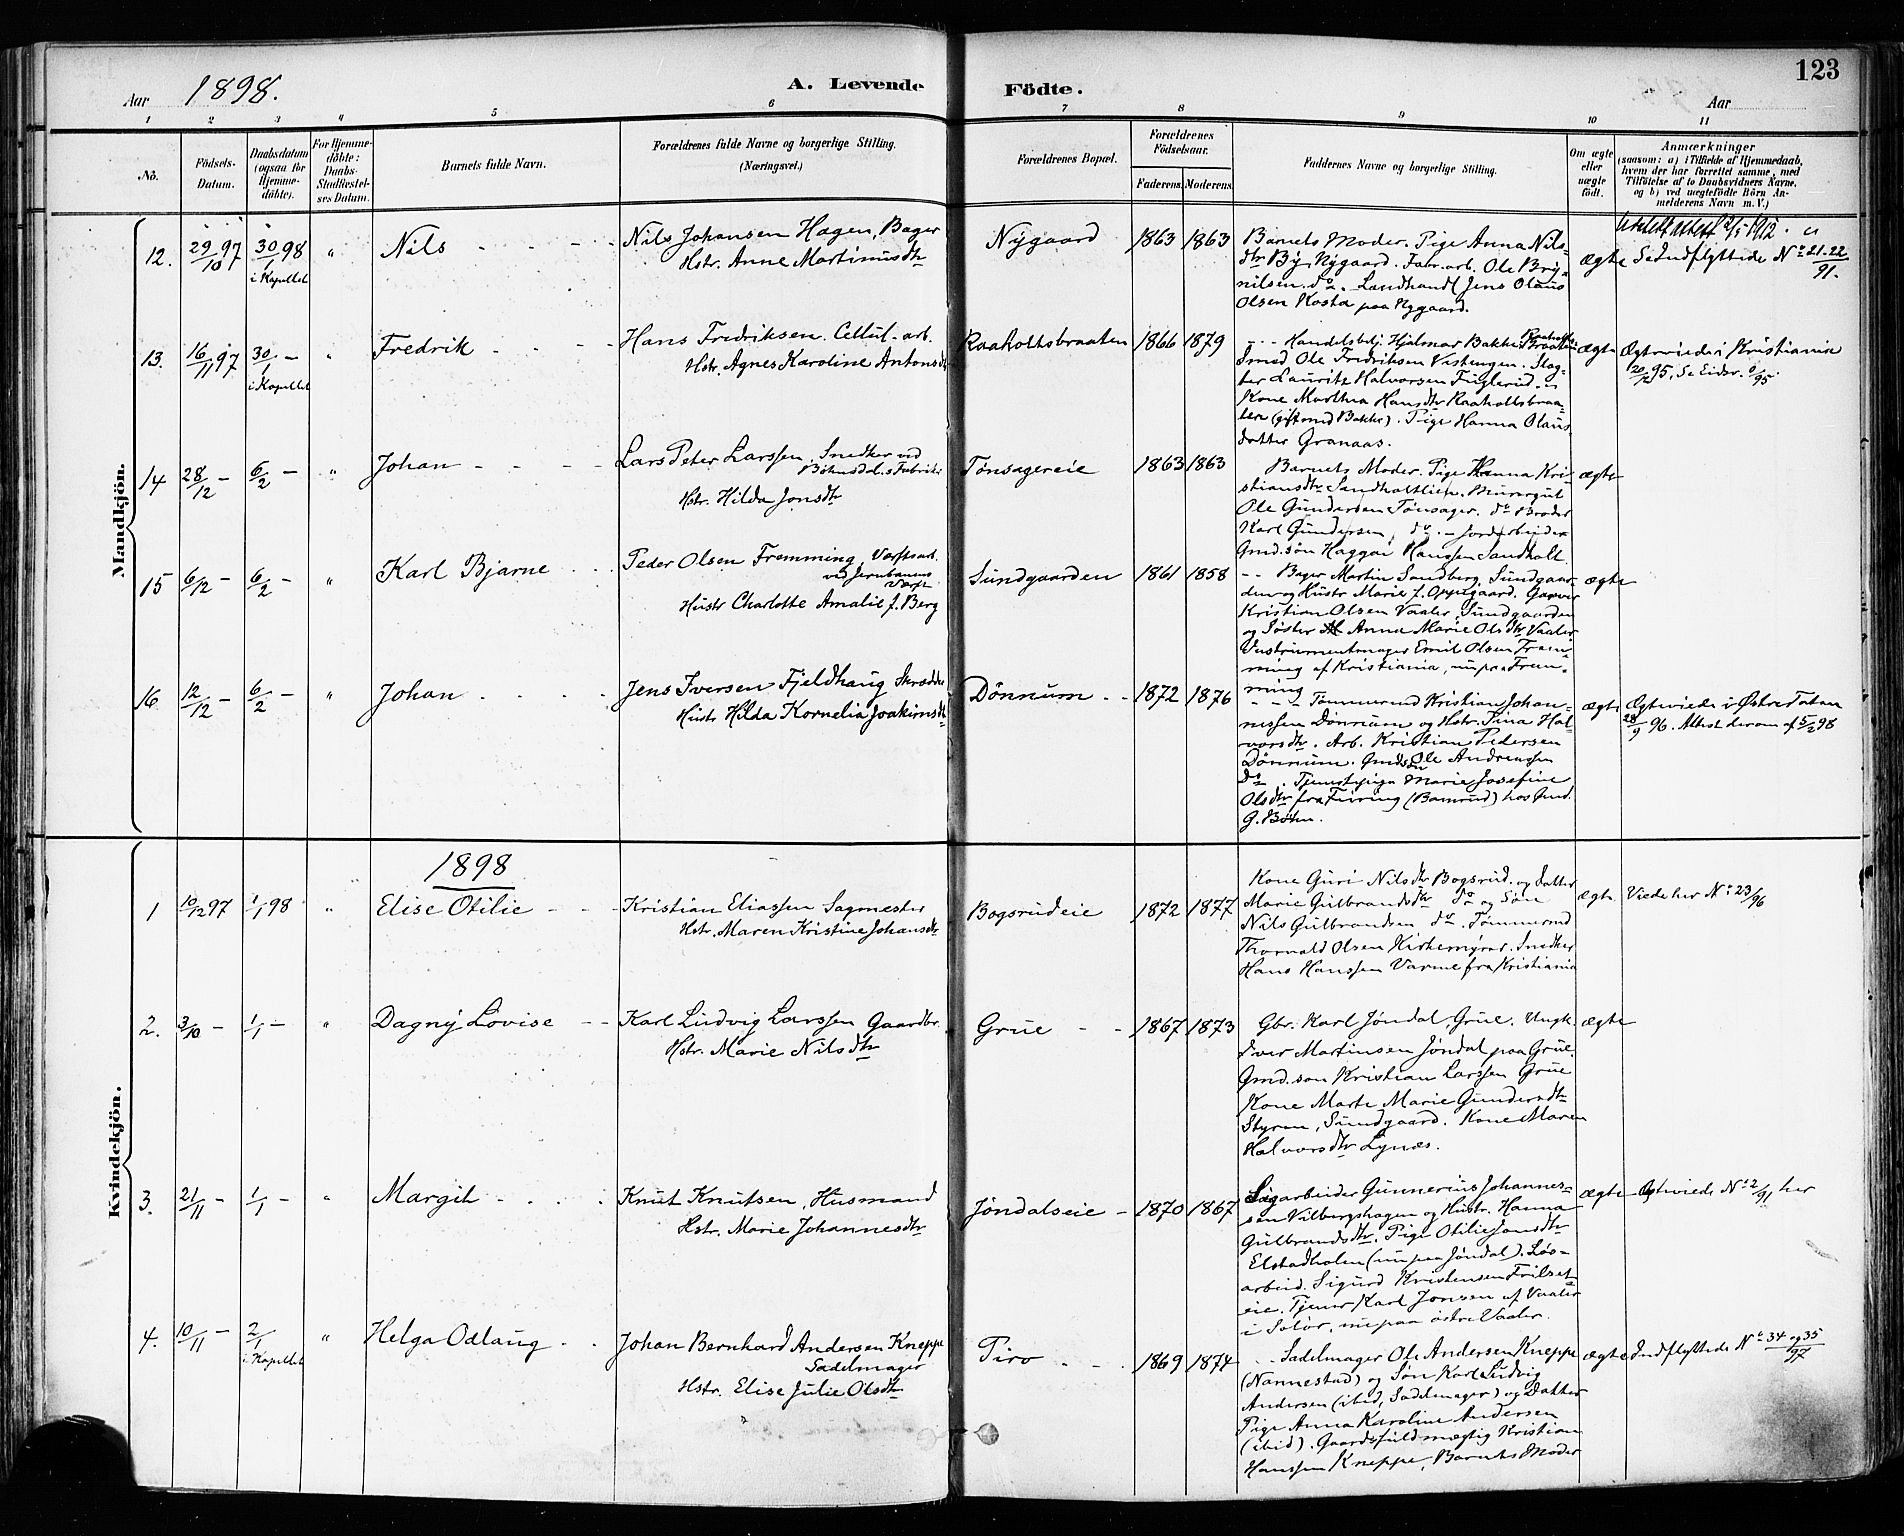 123
Aar 1898.
A. Levende Födte.
Aar
1 2 3 4 5 6 7 8 9 10 11
No.
Födsels-
Datum.
Daabsdatum
(ogsaa for
Hjemme-
döbte).
For Hjemme-
döbte:
Daabs-
Stadfæstel-
ses Datum.
Barnets fulde Navn.
Forældrenes fulde Navne og borgerlige Stilling.
(Næringsvei.)
Forældrenes Bopæl.
Forældrenes
Födselsaar.
Faderens. Moderens.
Faddernes Navne og borgerlige Stilling.
Om ægte
eller
uægte
födt.
Anmærkninger
(saasom: a) i Tilfælde af Hjemmedaab,
hvem der har forrettet samme, med
Tilföielse af to Daabsvidners Navne,
og b) ved uægtefödte Börn An-
melderens Navn m. V.)
Mandkjön.
12. 29/10 97 30/1 98 i Kapellet " Nils
Nils Johansen Hagen, Bager
Hstr. Anne Martinusdtr
Nygaard 1863 1863
Barnets Moder. Pige Anna Nils-
dtr By, Nygaard. Fabr. arb. Ole Bry-
nilsen do. Landhandl Jens Olaus
Olsen Kosta paa Nygaard.
ægte
1912
Se Indflyttede No 21.22/91.
13. 16/11 97 30/1 – i Kapellet " Fredrik
Hans Fredriksen. Cellul. arb.
Hstr. Agnes Karoline Antonsdtr
Raaholtsbraaten 1866 1879
– – Handelsbtj. Hjalmar Bakke Raaholts-
Braaten
Smed Ole Fredriksen Vestengen. Slag-
ter Lauritz Halvorsen Fuglerud
Kone Marthea Hansdtr Raaholtsbraa-
ten (gift med Bakke). Pige Hanna Olaus-
datter Granaas.
ægte
Ægteviede i Kristiania
20/12 95, Se Eidsv. 95.
14 28/12 – 6/2 – " Johan
Lars Peter Larssen, Snedker ved
Bøhnsdalens Fabriker
Hstr. Hilda Jonsdtr
Tønsagereie 1863 1863
Barnets Moder. Pige Hanna Kri-
stiansdtr Sandholtlien. Murergut
Ole Gundersen Tønsager. do Broder
Karl Gundersen, do. – Jordarbeider
Gmd. søn Haggai Hanssen Sandholt
ægte
15 6/12 – 6/2 – " Karl Bjarne
Peder Olsen Fremming Værftsarb.
ved Jernbanens
Værft
Hustr Charlotte Amalie f. Berg
Sundgaarden 1861 1858
– – Bager Martin Sandberg. Sundgaar-
den og Hustr Marie f. Oppegaard. Garver
Kristian Olsen Vaaler, Sundgaarden
og Søster Anna Marie Olsdtr Vaaler
Instrumentmager Emil Olsen Frem-
ming af Kristiania, nu paa Frem-
ming
ægte
16 12/12 – 6/2 – " Johan
Jens Iversen Fjeldhaug Skrædder
Hustr Hilda Kornelia Joakimsdtr
Dønnum 1872 1876
– – – Tømmermd Kristian Johan-
nessen Dønnum og Hstr. Tina Hal-
vorsdtr. Arb. Kristian Pedersen
Dønnum. Gmdsøn Ole Andreassen
Do. Tjenestepige Marie Josefine
Olsdtr fra Furing (Bamrud) hos Gmd.
G. Bøhn.
ægte
Ægteviede i Østre Toten
28/9 96. Attest derom af 5/2 98
Kvindekjön.
1898
1 10/12 97 1/1 98 " Elise Otilie
Kristian Eliassen Sagmester
Hstr. Maren Kristine Johansdtr
Bogsrudeie 1872 1877
Kone Guri Nilsdtr Bogsrud. og Datter
Marie Gulbrandsdtr Do og Søn
Nils Gulbrandsen do. Tømmermd
Thorvald Olsen Kirkemyrer. Snedker
Hans Hanssen Varme fra Kristiania
ægte
Viede her No 23/96
2. 3/10 – 1/1 – " Dagny Lovise
Karl Ludvig Larssen Gaardbr.
Hstr. Marie Nilsdtr
Grue 1867 1873
Gbr. Karl Jøndal, Grue. Ungk.
Iver Martinsen Jøndal paa Grue.
Gmd. søn Kristian Larssen Grue
Kone Marte Marie Gundersdtr
Styran, Sundgaard. Kone Maren
Halvorsdtr Lynæs.
ægte
3. 21/11 – 1/1 – " Margit
Knut Knutsen, Husmand
Hstr. Marie Johannesdtr
Jøndalseie 1870 1867
Sagarbeider Gunnerius Johannes-
sen Vilbergshagen og Hustr. Hanna
Gulbrandsdtr. Pige Otilie Jonsdtr
Elstadholen (nu paa Jøndal). Løs-
arbeid. Sigurd Kristensen Frilset-
eie. Tjener Karl Jonsen af Vaaler
i Solør, nu paa østre Vaaler.
ægte
Ægteviede No 2/91 her
4. 10/11 – 2/1 i Kapellet " Helga Odlaug
Johan Bernhard Andersen Kneppe
Sadelmager
Hstr. Elise Julie Olsdtr
Piro 1869 1874
– – Sadelmager Ole Andersen Kneppe
(Nannestad) og Søn Karl Ludvig
Andersen (ibid, Sadelmager) og Datter
Pige Anna Karoline Andersen
(ibid). Gaardsfuldmægtig Kristian
Hanssen Kneppe, Barnets Moder
ægte
Indflyttede No 34 og 35/97